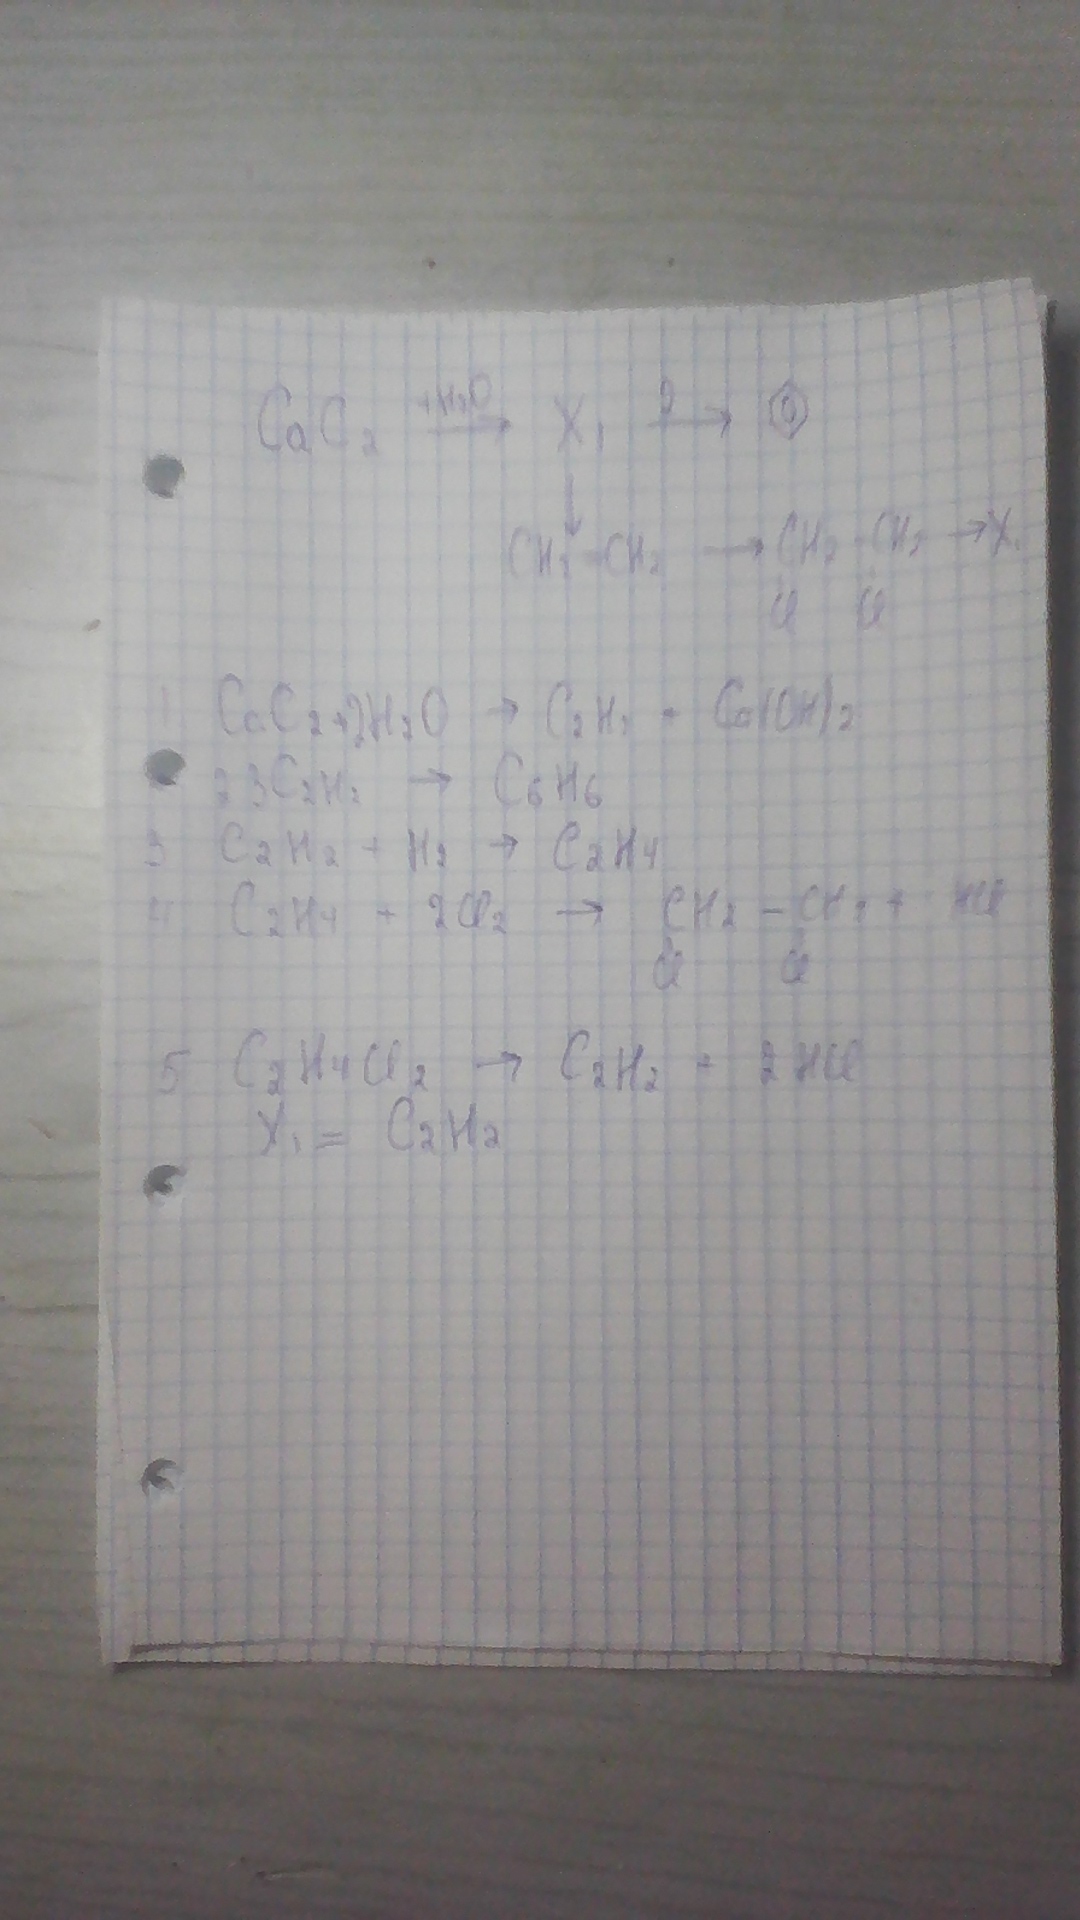 CaC₂ +H₂O → X₁ ? → ⌬
↓
CH₂-CH₂ → CH₂-CH₂ → X₁
Cl Cl
1 CaC₂+2H₂O → C₂H₂ + Ca(OH)₂
2 3C₂H₂ → C₆H₆
3 C₂H₂ + H₂ → C₂H₄
4 C₂H₄ + 2Cl₂ → CH₂ - CH₂ + HCl
Cl Cl
5 C₂H₄Cl₂ → C₂H₂ + 2HCl
X₁ = C₂H₂